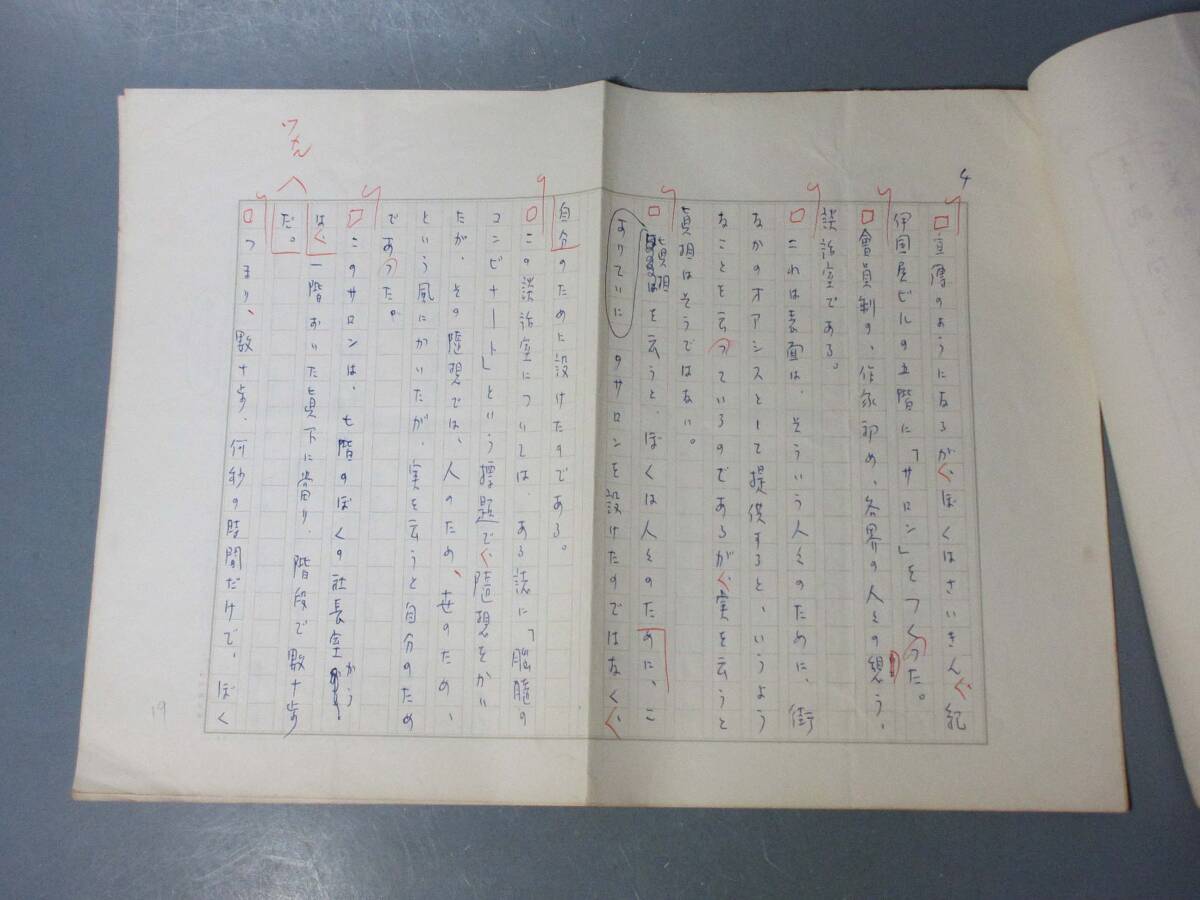 4
重複のようになるが、ぼくはさいきん、紀
伊国屋ビルの五階に「サロン」をつくった。
會員制の、作家初め、各界の人々の憩う、
談話室である。
これは表面は、そういう人々のために、街
なかのオアシスとして提供すると、いうよう
なことを云っているのであるが、実を云うと
真相はそうではない。
真相を云うと、ぼくは人々のために、こ
ありていに
のサロンを設けたのではなく、
自分のために設けたのである。
この談話室については、ある誌に「脳髄の
コンビナート」という標題で、随想をかい
たが、その随想では、人のため、世のため、
という風にかいたが、実を云うと自分のため
であった。
このサロンは、七階のぼくの社長室から
は、一階おいた真下に当り、階段で数十歩
だ。
つまり、数十歩、何秒の時間だけで、ぼく
19